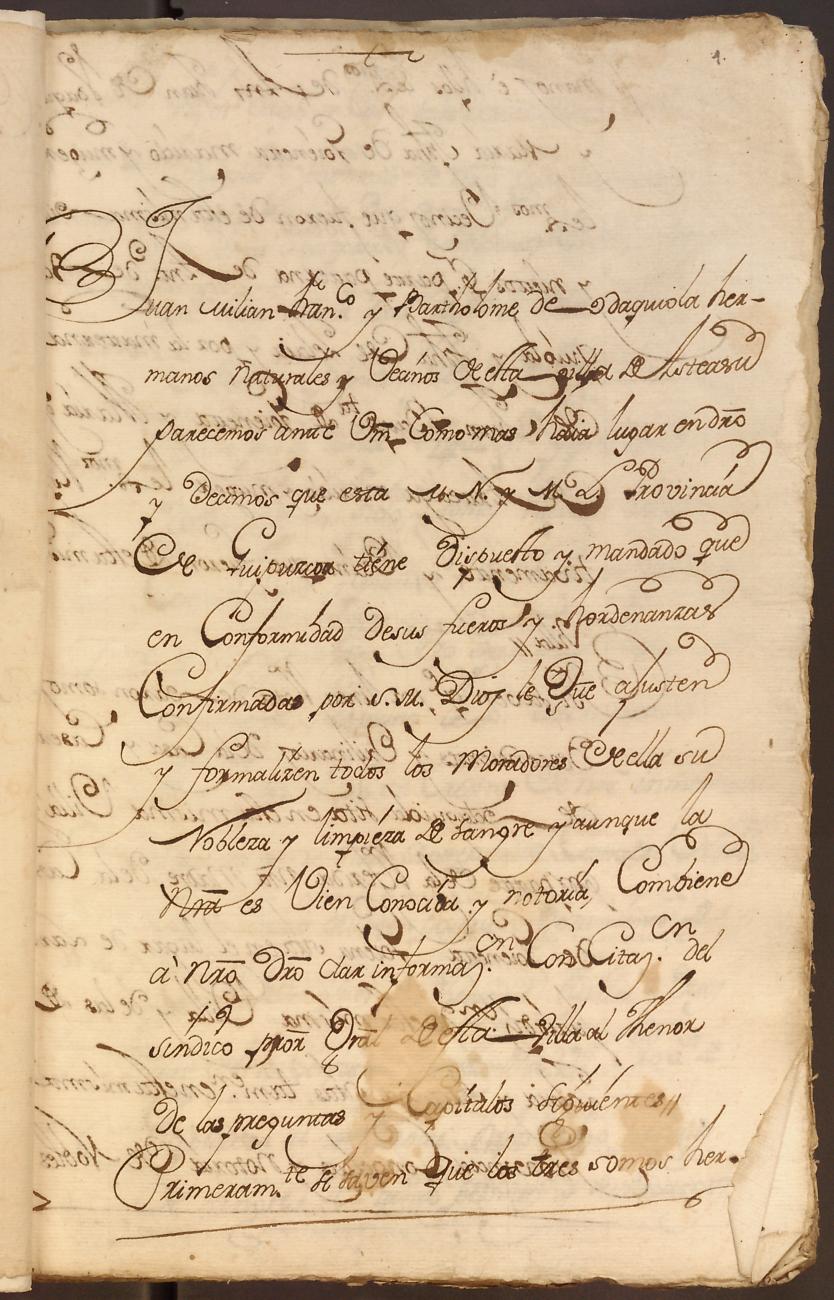 1.
Juan Milian fran.co y Bartholome de odaquiola her-
manos naturales y Veçinos de esta villa de Asteasu
parecemos ante Vm Como mas haia lugar en dro
y Decimos que esta M. N. y M. L. Provincia
de Guipuzcoa tiene Dispuesto y mandado que
en Conformidad de sus fueros y hordenanzas
Confirmadas por S. M. Dios le Gue ajusten
y formalizen todos los Moradores de ella su
Nobleza y limpieza de Sangre y aunque la
Nra es Vien Conocida y notoria, Combiene
à Nro Dro dar informaj.on Con Citaj.on del
sindico pror Gral de esta Villa al Thenor
de las preguntas y Capitulos siguientes//
Primeram.te si saven que los tres somos her-